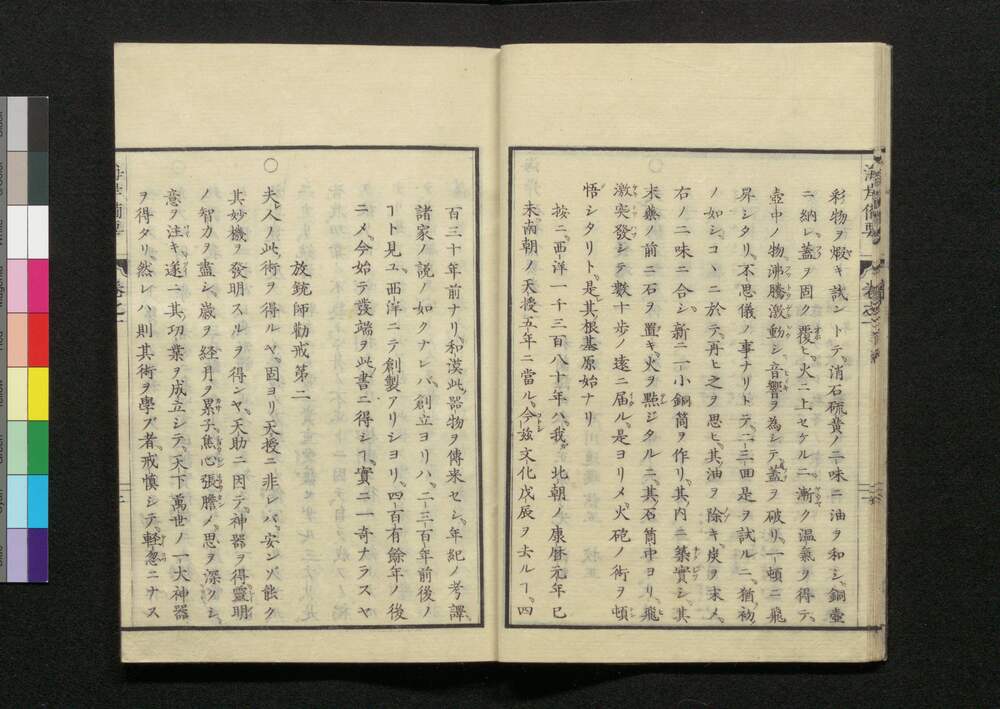 彩物ヲ煆キ試ントテ、消石硫黄ノ二味ニ油ヲ和シ、銅壷
ニ納レ、蓋ヲ固ク覆ヒ、火ニ上セケルニ、漸ク温氣ヲ得テ、
壷中ノ物、沸騰激動シ、音響ヲ為シテ、蓋ヲ破リ、一頓ニ飛
昇シタリ、不思儀ノ事ナリトテ、二三囬是ヲ試ルニ、猶初
ノ如シ、コヽニ於テ、再ヒ之ヲ思ヒ、其油ヲ除キ、炭ヲ末メ、
右ノ二味ニ合シ、新ニ一小銅筒ヲ作リ、其内ニ築實シ、其
末藥ノ前ニ石ヲ置キ、火ヲ點ジタルニ、其石筒中ヨリ、飛
激突發シテ、數十歩ノ遠ニ届ル、是ヨリメ、火砲ノ術ヲ頓
悟シタリト、是其根基原始ナリ
按ニ、西洋一千三百八十年ハ、我北朝ノ康暦元年已
未、南朝ノ天授五年ニ當ル、今茲文化戊辰ヲ去ルヿ、四
百三十年前ナリ、和漢此器物ヲ傳来セシ、年紀ノ考譯、
諸家ノ説ノ如クナレバ、創立ヨリハ、二三百年前後ノ
ヿト見ユ、西洋ニテ創製アリシヨリ、四百有餘年ノ後
ニメ、今始テ發端ヲ此書ニ得シヿ、實ニ一奇ナラスヤ
放銃師勸戒第二
○夫人ノ此術ヲ得ルヤ、固ヨリ天授ニ非レバ、安ンゾ能ク
其妙機ヲ發明スルヲ得ンヤ、天助ニ因テ、神器ヲ得、靈明
ノ智力ヲ盡シ、歳ヲ経、月ヲ累子、焦心張膽メ、思ヲ深クシ、
意ヲ注キ、遂ニ其功業ヲ成立シテ、天下萬世ノ一大神器
ヲ得タリ、然レハ則其術ヲ學ブ者、戒慎シテ、輕忽ニナス